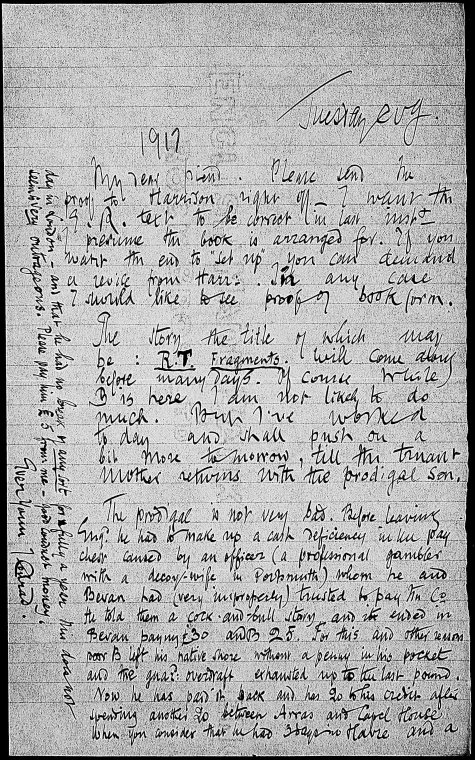 Tuesday evg.
1917
My dear friend. Please send the
proof to Harrison right off – I want the
E. R. text to be correct in last inst–
I presume the book is arranged for. If you
want the end to "set up" you can demand
a revise from Harr: In any case
I should like to see proof of book form.
The story the title of which may
be: R.T. Fragments. will come along
before many days. Of course while
B is here I am not likely to do
much. But I've worked
to day and shall push on a
bit more tomorrow, till the
mother returns with the prodigal son.
The prodigal is not very bad. Before leaving
he had to make up a cash deficiency in the pay
chest caused by an officer (a professional gambler
with a decoy-wife in Portsmouth) whom he and
Bevan had (very improperly) trusted to pay the Co
He told them a cock-and-bull story and it ended in
Bevan paying £30 and B 25. For this and other reasons
poor B left his native shore without a penny in his pocket
and the guar: overdraft exhausted up to the last pound.
Now he has paid it back and has 20 to his credit after
spending another 20 between Arras and Capel House.
When you consider that he had 3 days in Havre and a
day in London – and that he had no break of any sort for fully a year this does not
seem very outrageous. Please pay him £5 from me – good honest money.
Ever yours J Conrad.